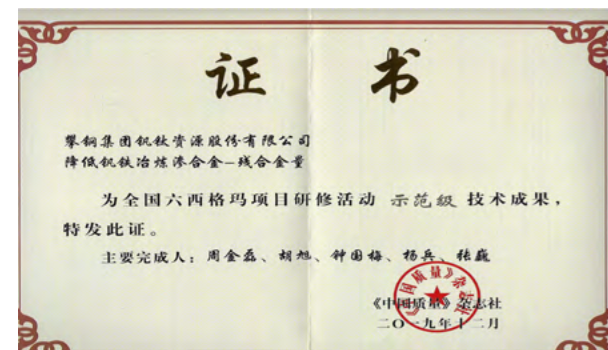 证 书
攀钢集团钒钛资源股份有限公司
降低钒铁冶炼渗合金-残合金量
为全国六西格玛项目研修活动 示范级 技术成果，
特发此证。
主要完成人：周金磊、胡旭、钟国梅、杨兵、张巍
《中国质量》杂志社
二〇一九年十二月
《中国质量》杂志社